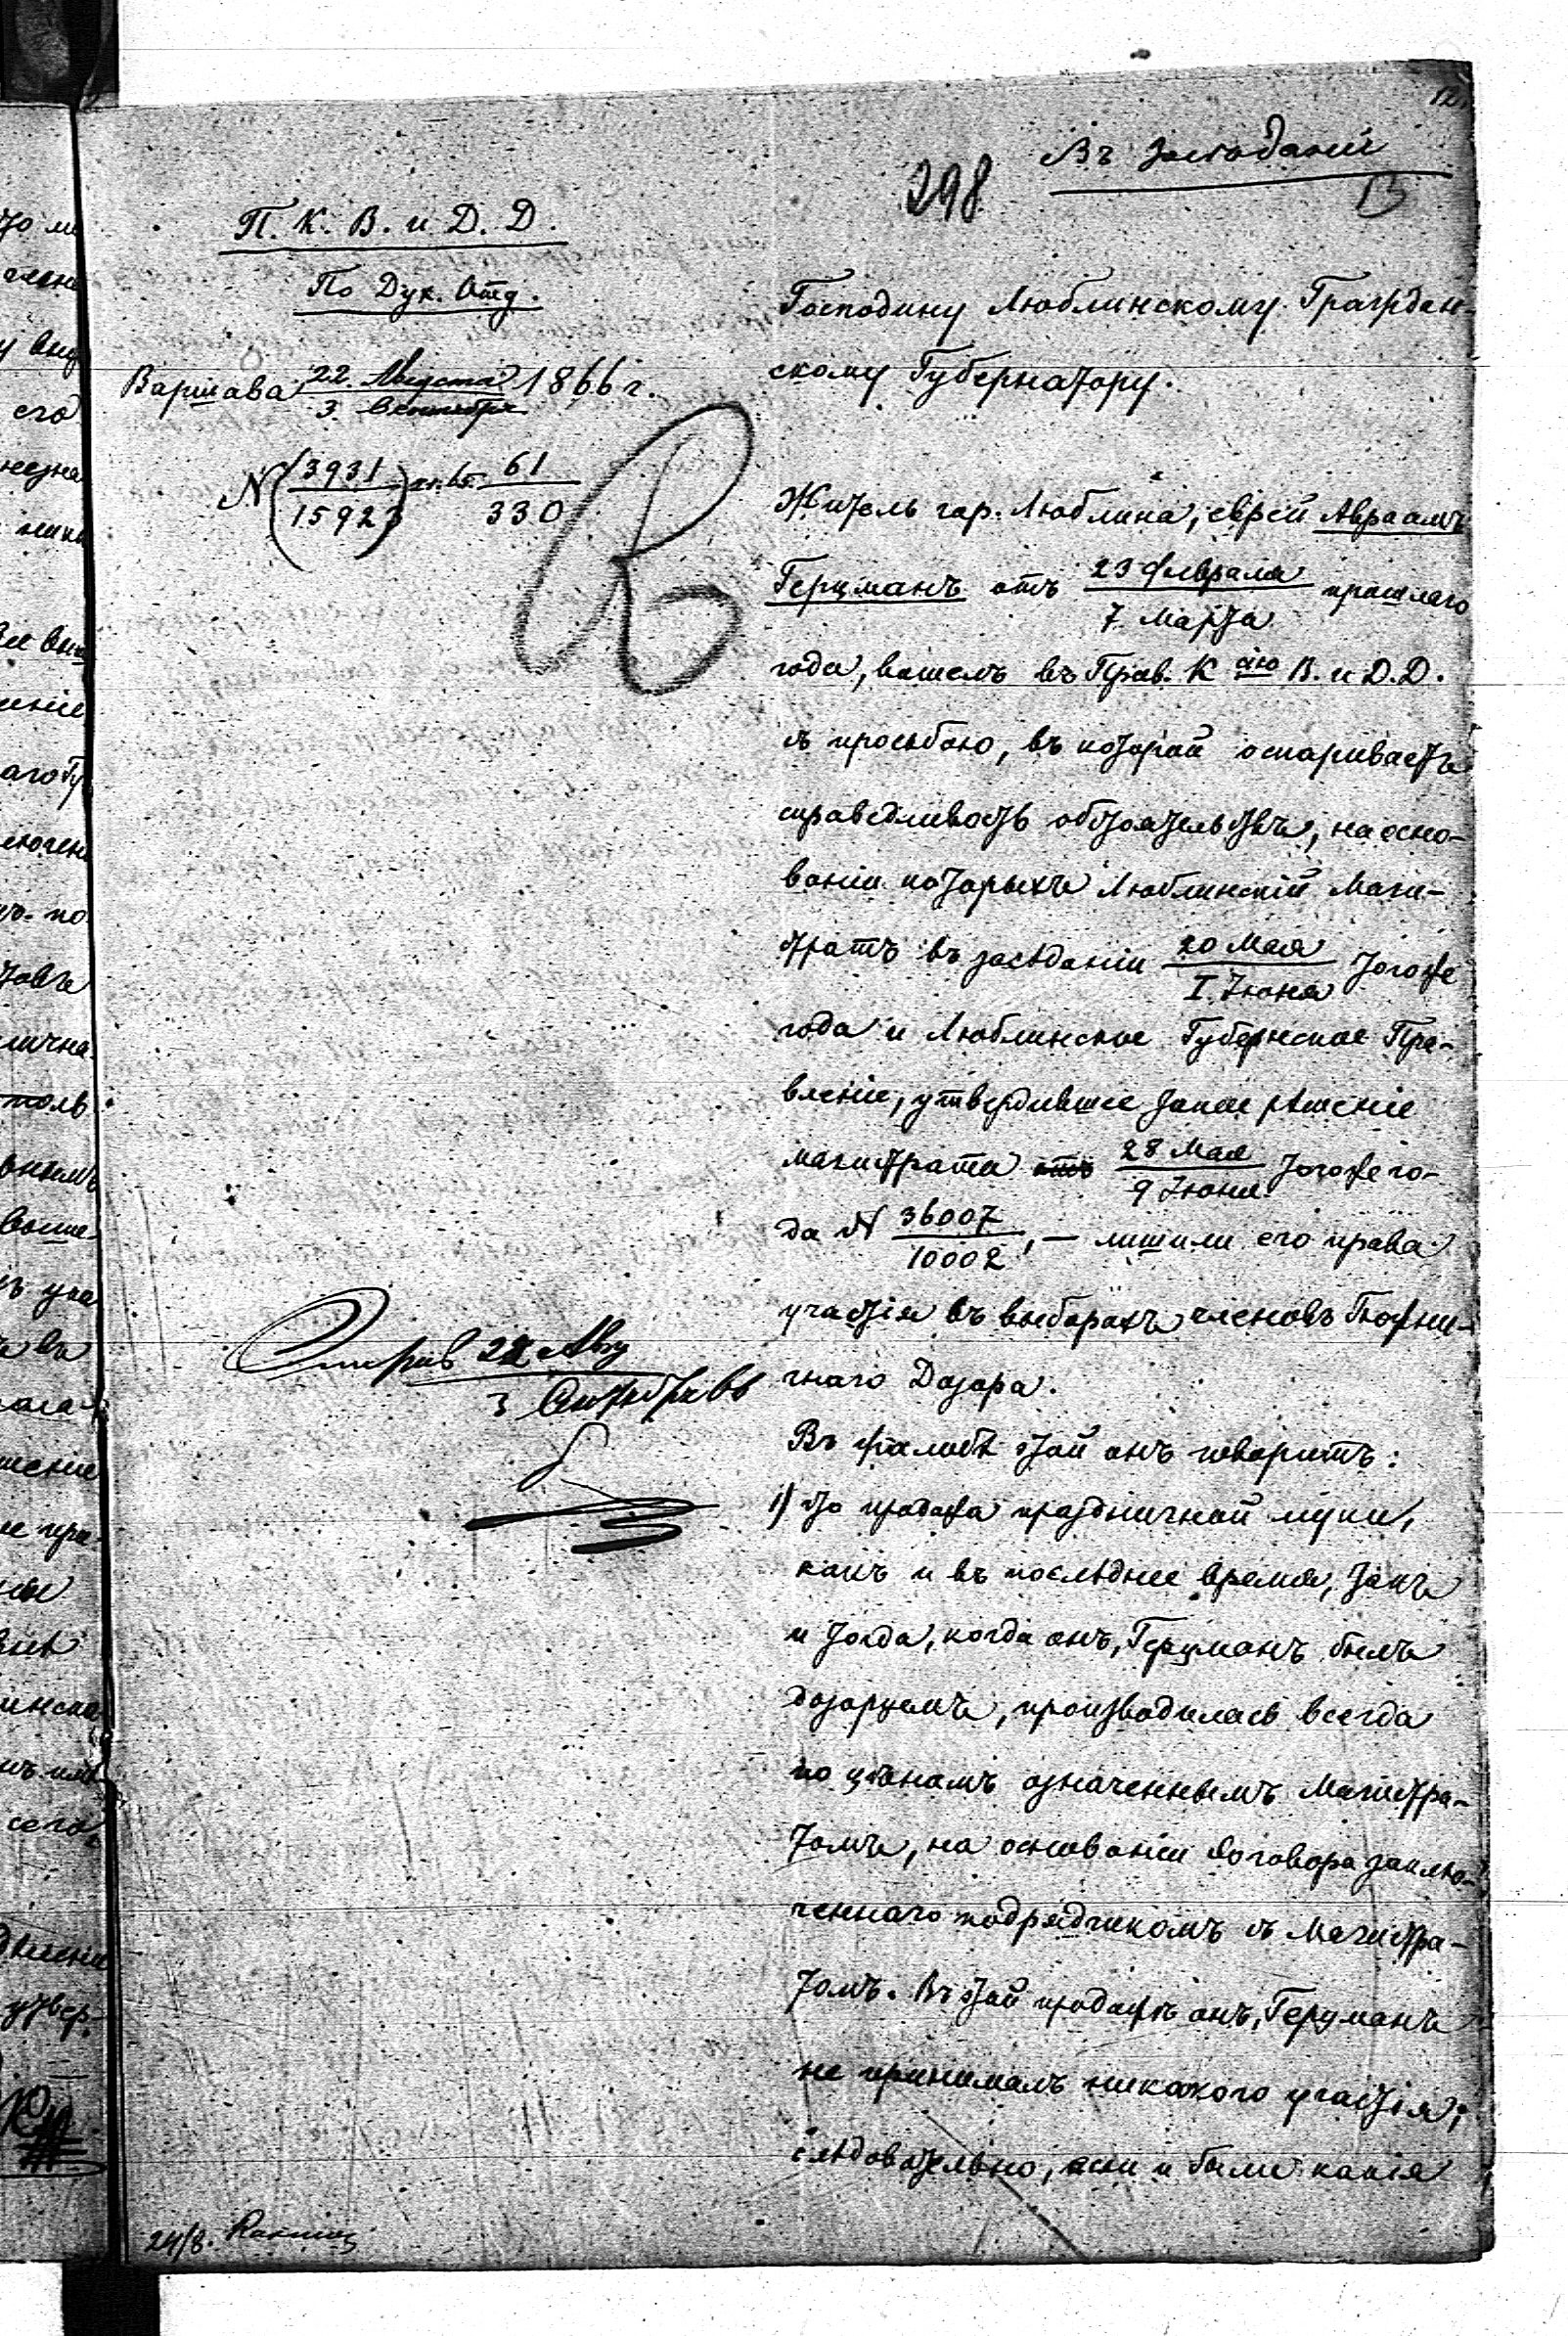 12
Въ засѣданіи
298
13
П. К. В. и Д. Д.
По Дух. Отд.
Варшава 22 Августа / 3 Сентября 1866 г.
N (3931 / 15923) 61 / 330
Господину Люблинскому Граждан-
скому Губернатору.
Житель гор. Люблина, еврей Авраамъ
Герцманъ отъ 23 Февраля / 7 Марта прошлаго
года, вошелъ въ Прав. К сію В. и Д. Д.
съ просьбою, въ которой оспариваетъ
справедливость обстоятельствъ, на осно-
ваніи которыхъ Люблинскій Маги-
стратъ въ засѣданіи 20 Мая / I Іюня тогоже
года и Люблинское Губернское Пра-
вленіе, утвердившее такое рѣшеніе
магистрата 28 Мая / 9 Іюня тогоже го-
да N 36007 / 10002, — лишили его права
участія въ выборахъ членовъ Божни-
чнаго Дозора.
Въ жалобѣ этой онъ говоритъ:
1) что продажа праздничной муки,
какъ и въ послѣднее время, такъ
и тогда, когда онъ, Герцманъ былъ
дозорцемъ, производилась всегда
по цѣнамъ означеннымъ Магистра-
томъ, на основаніи договора заклю-
ченнаго подрядчикомъ съ Магистра-
томъ. Въ этой продажѣ онъ, Герцманъ
не принималъ никакого участія;
слѣдовательно, если и были какія
22 Авг
3 Сентября 66
24/8.